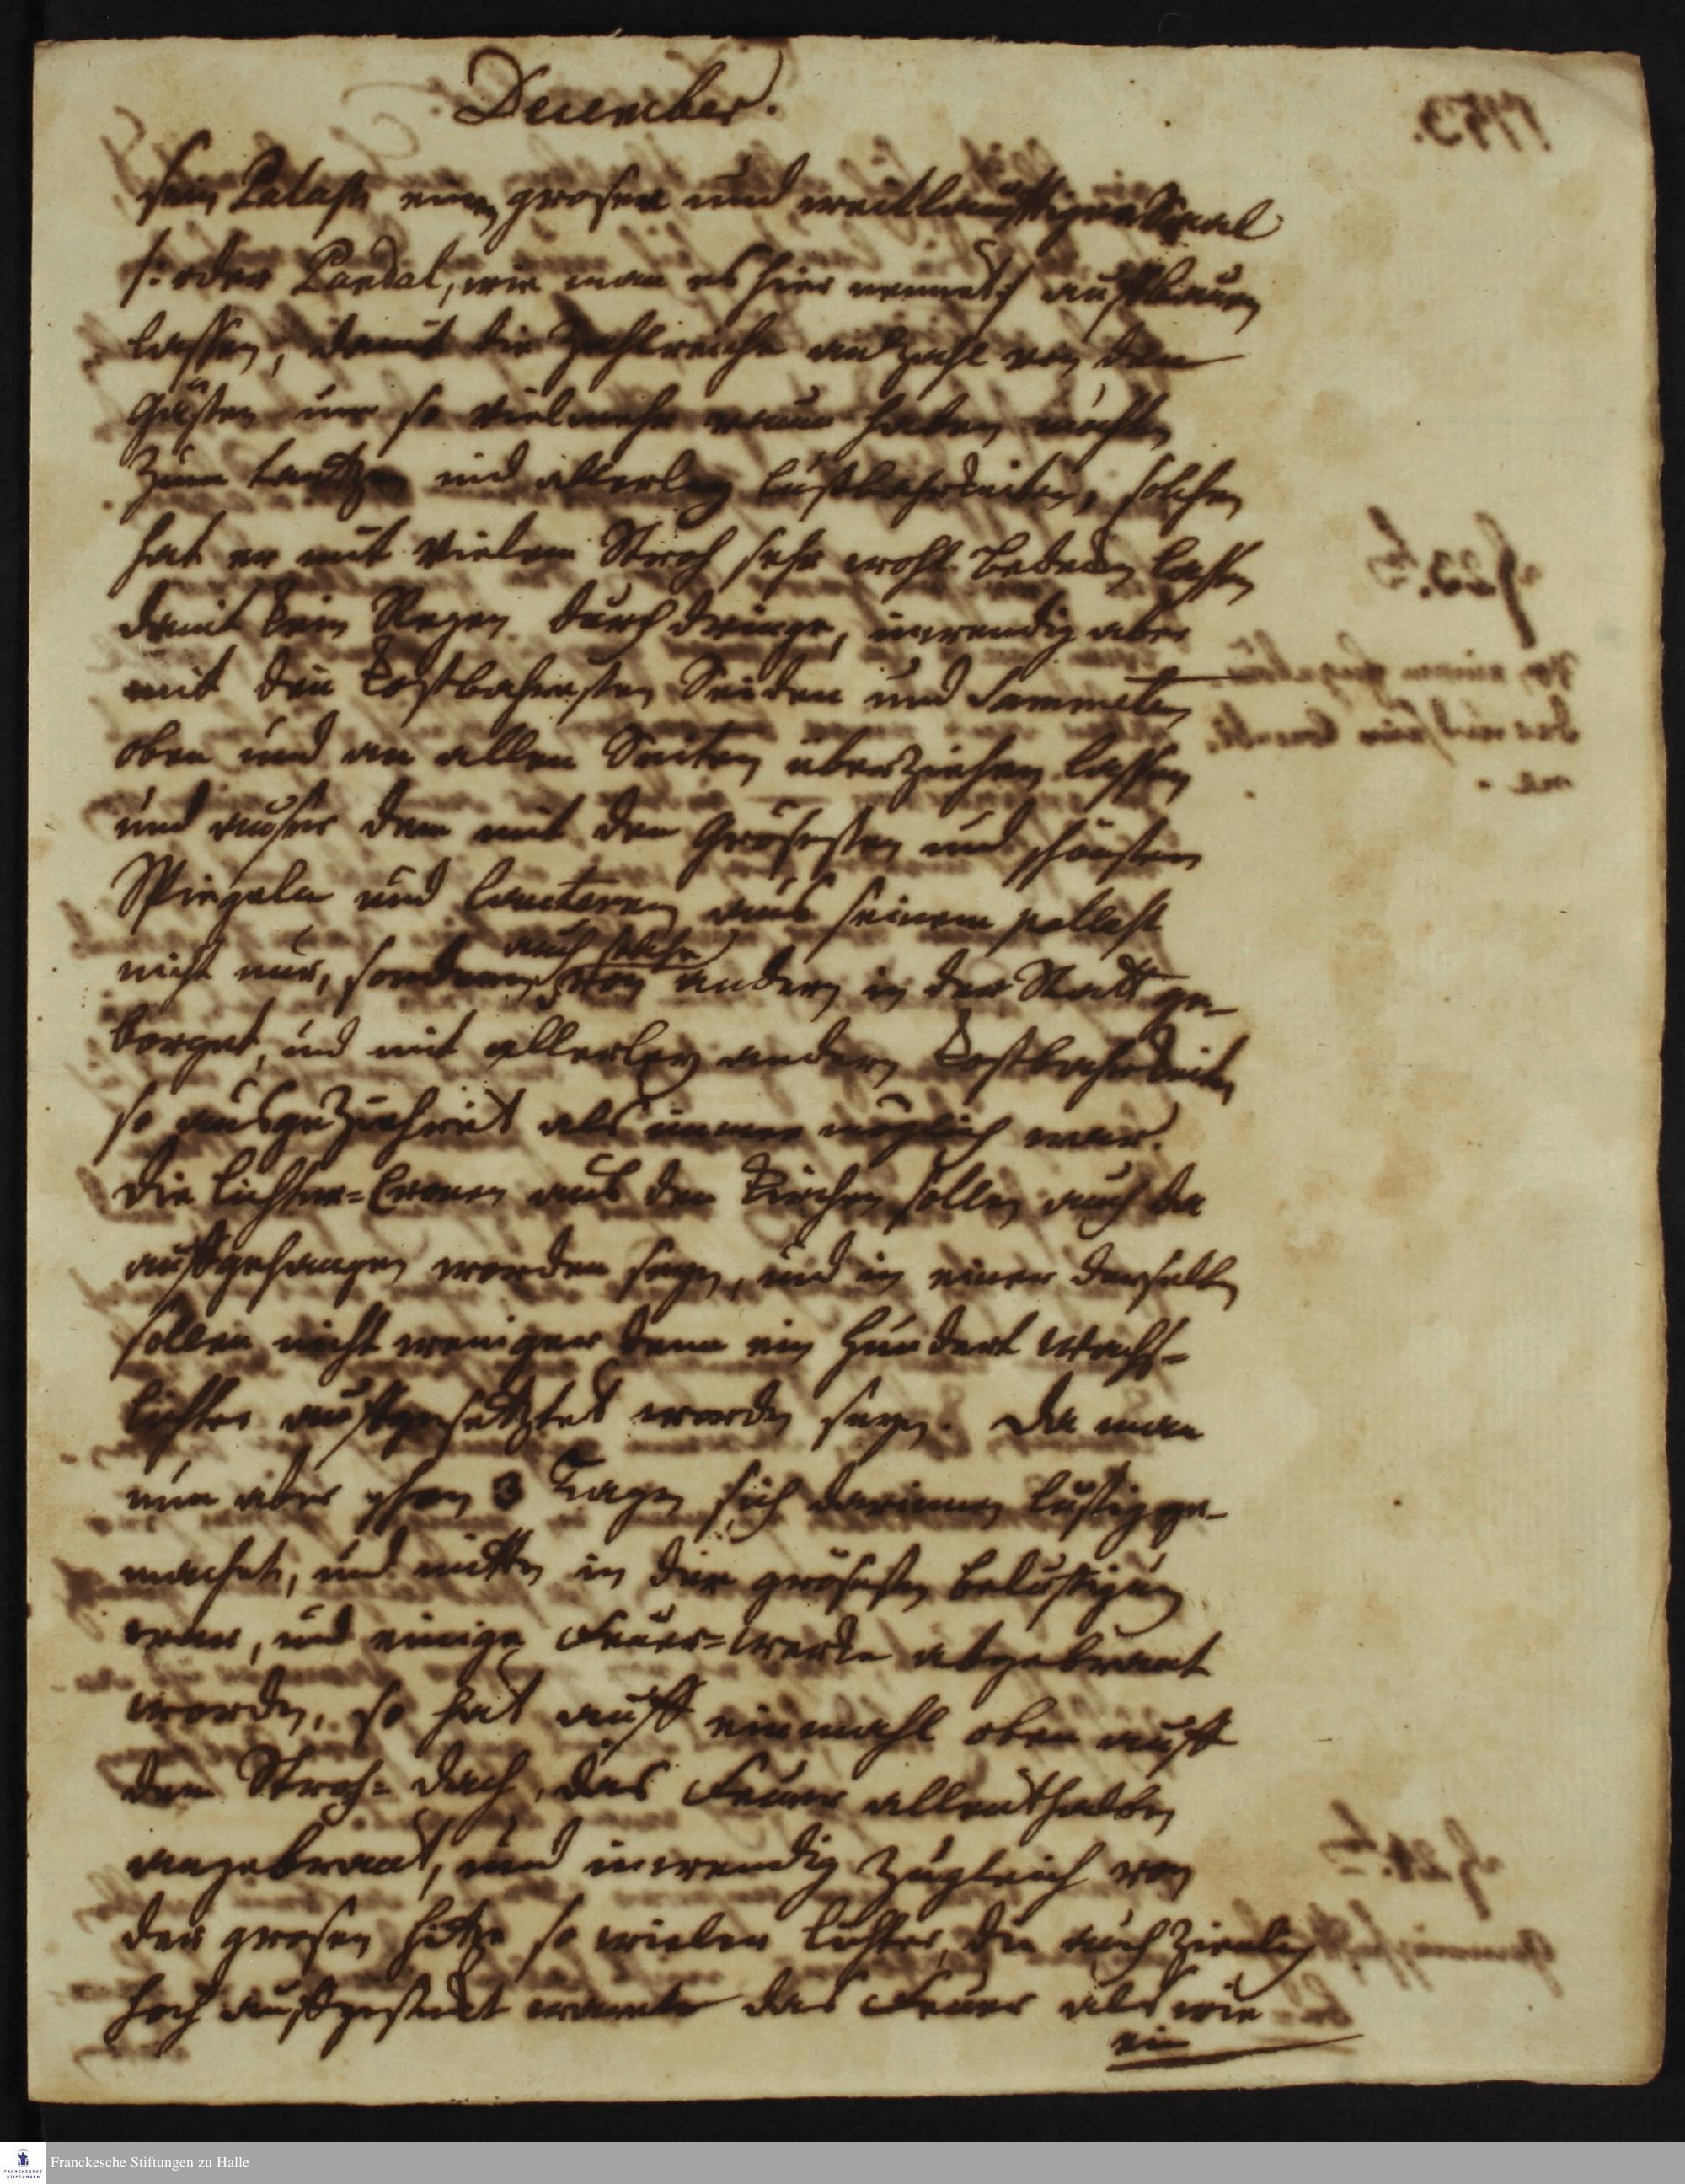 December.
sein Palast einen grosen und weitläufftigen Saal
/: oder Pandal, wie man es hier nennet :/ auffbauen
lassen, damit die Zahlreiche anzahl von den
Gästen um so vielmehr raum haben möchten
Zum tantzen und allerley lustbahrkeiten, solchen
hat er mit vielem Stroh sehr wohl bedecken lassen
damit kein Regen durchdringe, inwendig aber
mit den kostbahresten Seiden und Sammeten
oben und an allen Seiten überziehen lassen
und auser dem mit den grösesten und schönsten
Spiegeln und lanternen aus seinem pallast
nicht nur, sondern auch solche von andern in der Statt ge-
borget, und mit allerley andern kostbahrkeiten
so ausgeziehret als immer möglich war.
Die lichter=Cronen aus den Kirchen sollen auch da
auffgehangen worden seyn, und in einer derselben
sollen nicht weniger denn ein Hundert Wachs=
lichter auffgesetztet worden seyn. Da man
nun aber schon 3 Tagen sich darinnen lustig ge-
machet, und mitten in der grösesten belustigung
war, und einige Feuer=wercke abgebrant
worden, so hat auff einmahl oben auff
dem Stroh=dach, das Feuer allenthalben
angebrant, und inwendig zugleich von
der grosen hitze so vielen lichter, die auch Ziemlich
hoch auffgesteckt waren das Feuer als wie
ein
Franckesche Stiftungen zu Halle